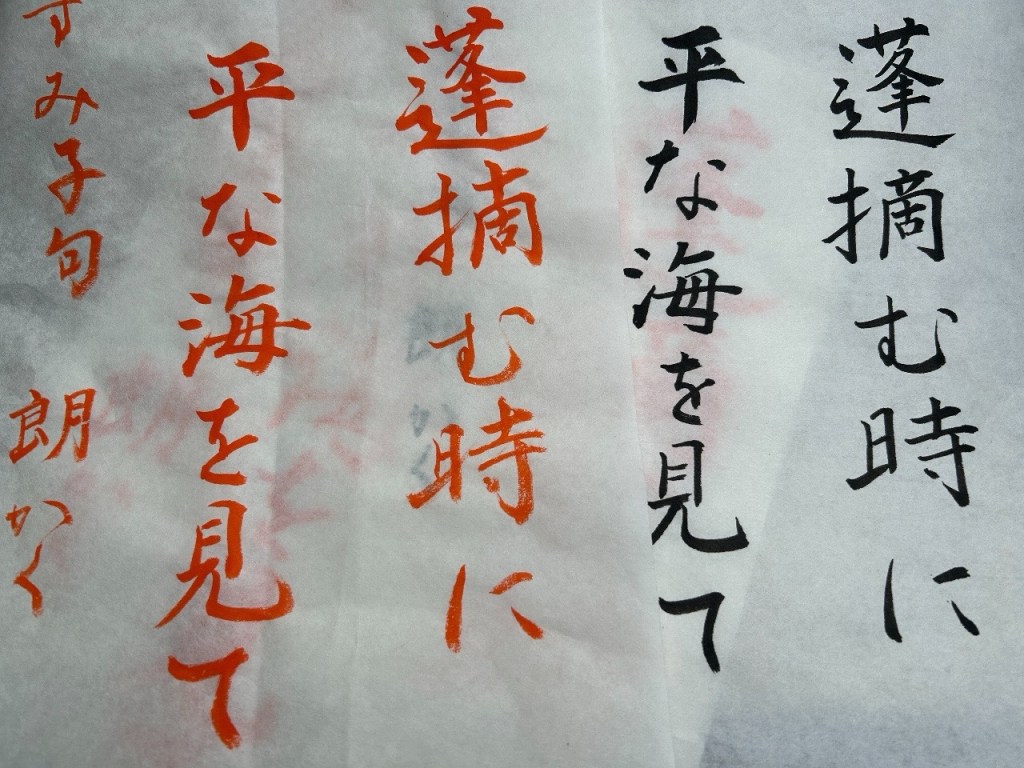 蓬摘む時に
平な海を見て
蓬摘む時に
平な海を見て
すみ子句 朗かく